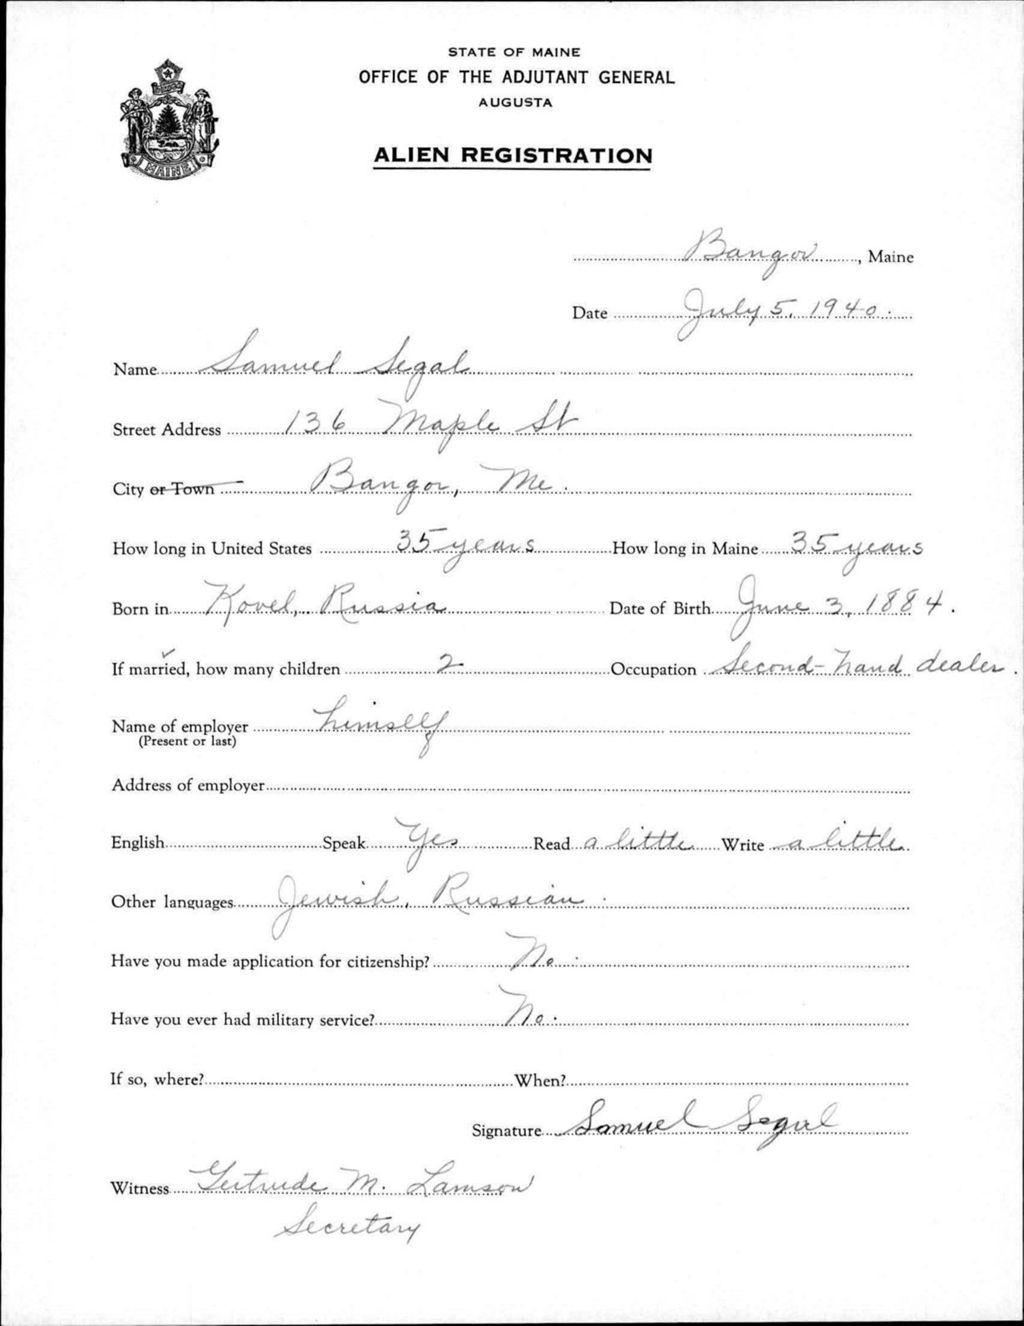 STATE OF MAINE
OFFICE OF THE ADJUTANT GENERAL
AUGUSTA
ALIEN REGISTRATION
MAINE
Bangor, Maine
Date July 5, 1940.
Name Samuel Segal
Street Address 136 Maple St
City or Town Bangor, Me.
How long in United States 35 years How long in Maine 35 years
Born in Kovel, Russia Date of Birth June 3, 1884.
If married, how many children 2 Occupation Second-hand dealer.
Name of employer himself
(Present or last)
Address of employer
English Speak Yes Read a little Write a little
Other languages Jewish, Russian.
Have you made application for citizenship? No.
Have you ever had military service? No.
If so, where? When?
Signature Samuel Segal
Witness Gertrude M. Lamson
Secretary